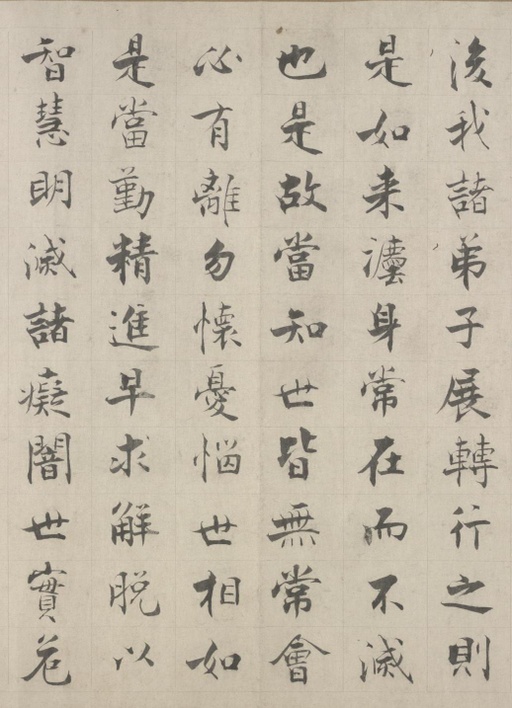 後我諸弟子展轉行之則
是如来灋身常在而不滅
也是故當知世皆無常會
必有離勿懷憂惱世相如
是當勤精進早求解脱以
智慧明滅諸癡闇世實危